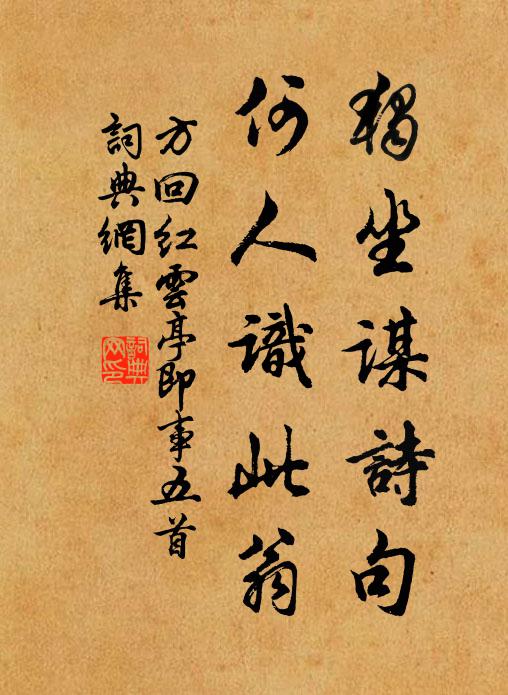 獨坐謀詩句
何人識此翁
方回紅雲亭即事五首
詞典網集
詞典網印